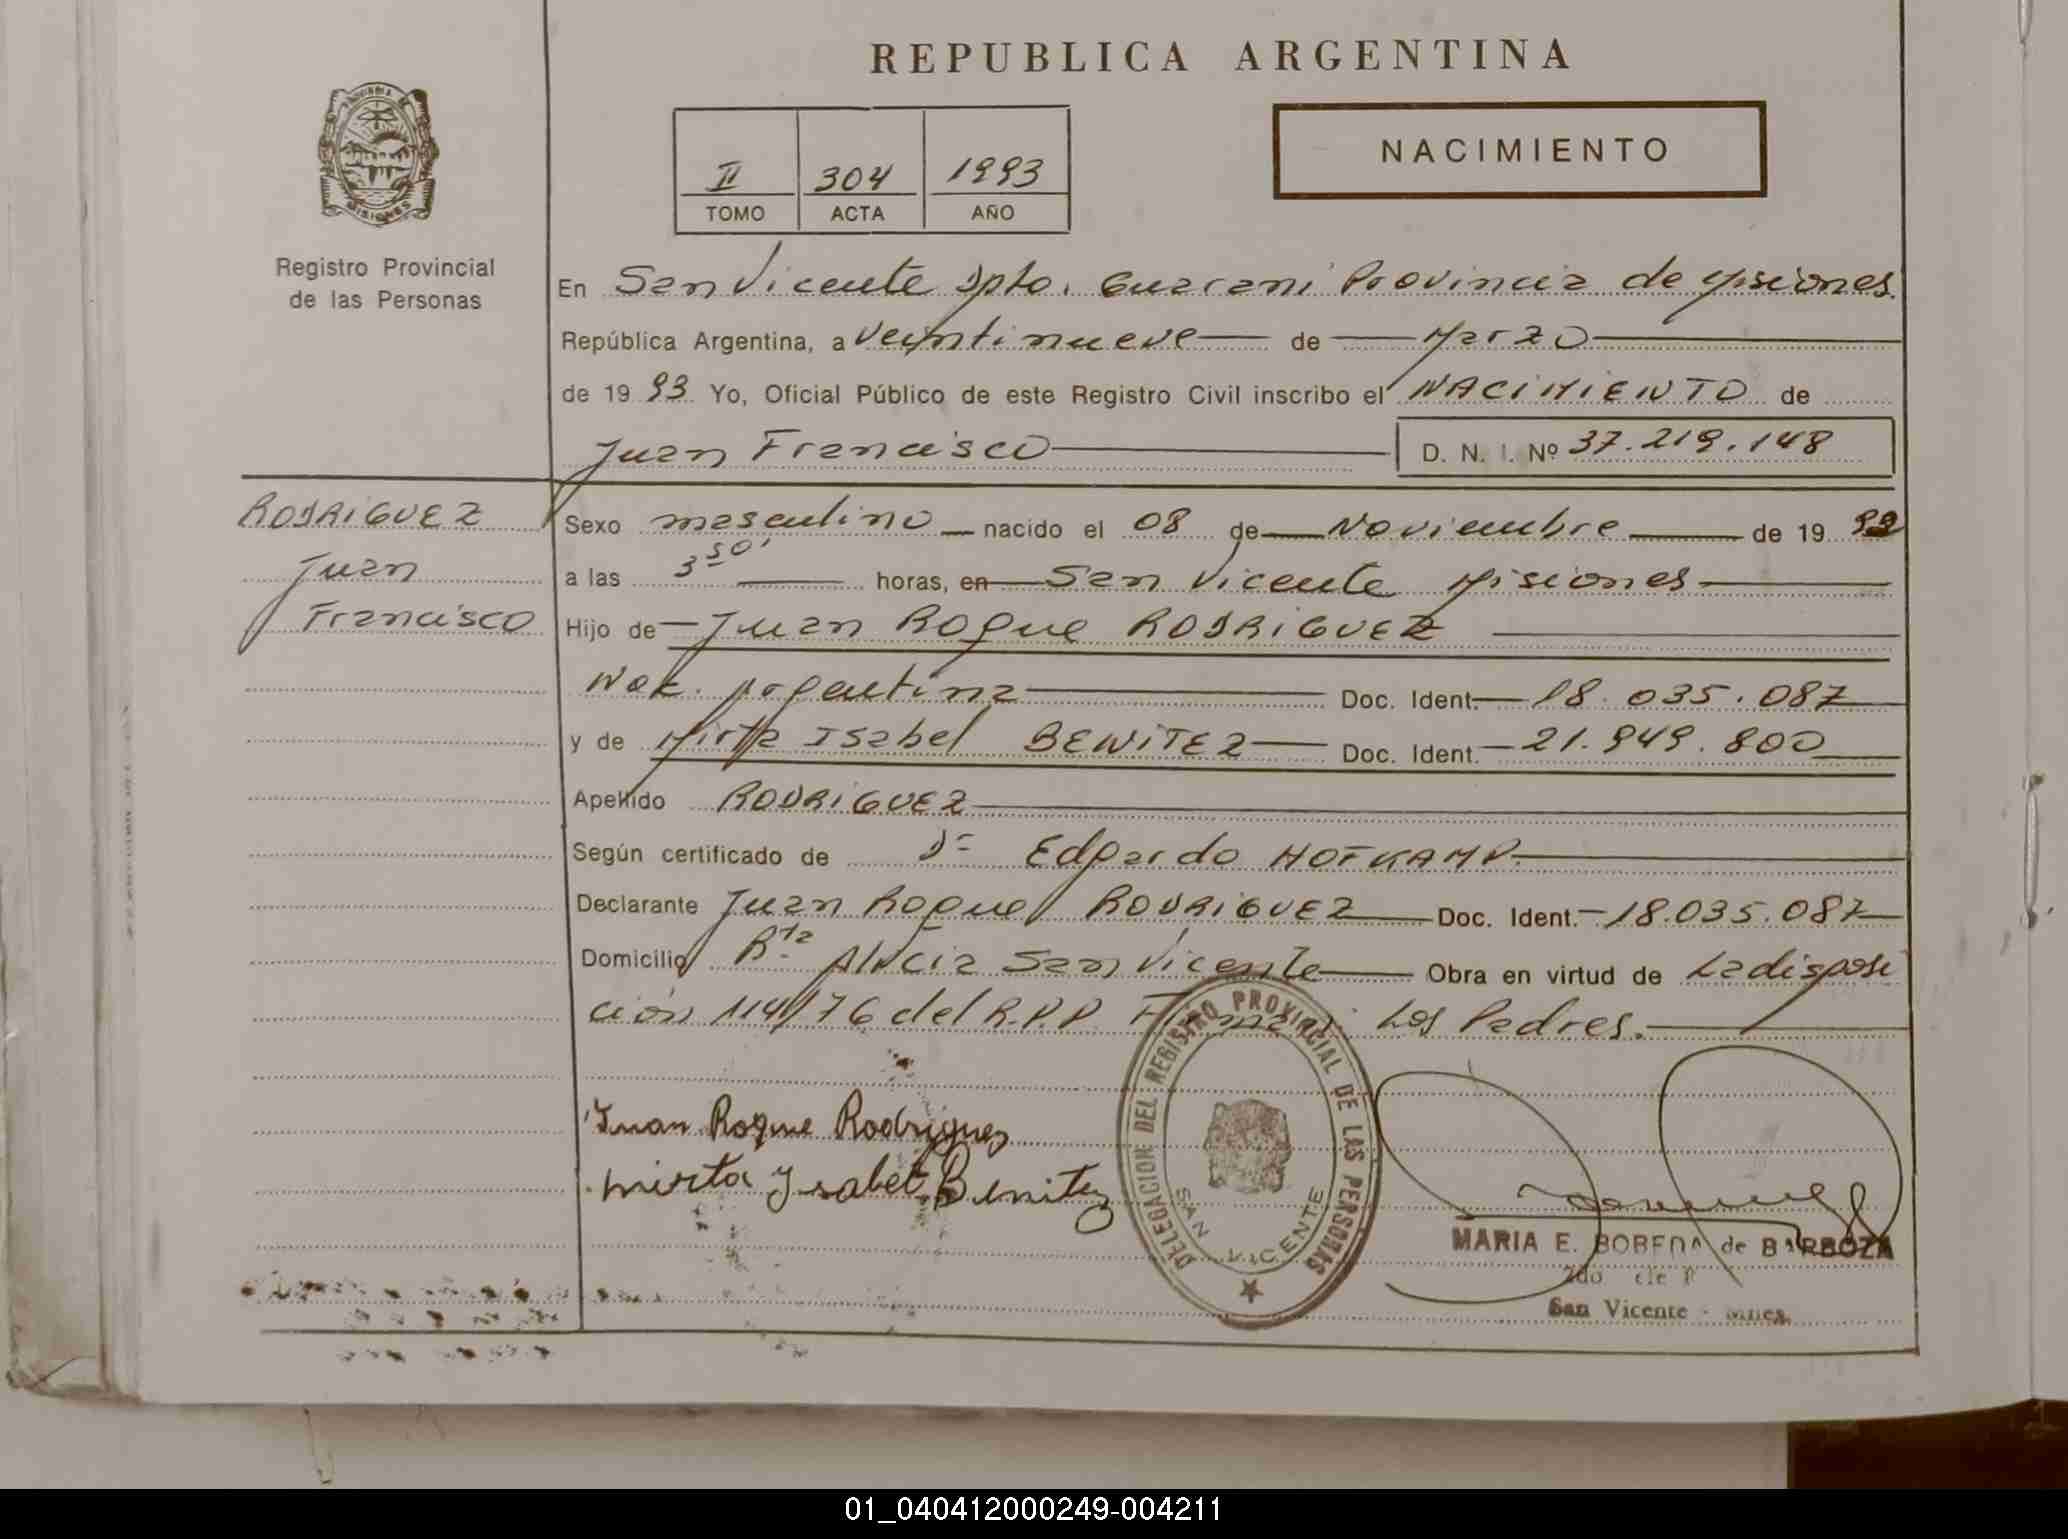 REPUBLICA ARGENTINA
NACIMIENTO
II 304 1993
TOMO ACTA AÑO
PROVINCIA DE
MISIONES
Registro Provincial
de las Personas
En San Vicente Dpto. Guarani Provincia de Misiones
República Argentina, a veintinueve de Marzo
de 1993 Yo, Oficial Público de este Registro Civil inscribo el NACIMIENTO de
Juan Francisco D. N. I. Nº 37.219.148
RODRIGUEZ
Juan
Francisco
Sexo masculino nacido el 08 de Noviembre de 1992
a las 3 50' horas, en San Vicente Misiones
Hijo de Juan Roque RODRIGUEZ
Nac. Argentina Doc. Ident. 18.035.087
y de Mirta Isabel BENITEZ Doc. Ident. 21.949.800
Apellido RODRIGUEZ
Según certificado de Dr Edgardo HOFKAMP.
Declarante Juan Roque RODRIGUEZ Doc. Ident. 18.035.087
Domicilio Alicia San Vicente Obra en virtud de La disposi
ción 114/76 del R.P.P. Firman: Los Padres.
Juan Roque Rodriguez
mirta Ysabel Benitez
DELEGACION DEL REGISTRO PROVINCIAL DE LAS PERSONAS
SAN VICENTE
MARIA E. BOBEDA de BARBOZA
San Vicente - Mnes.
01_040412000249-004211